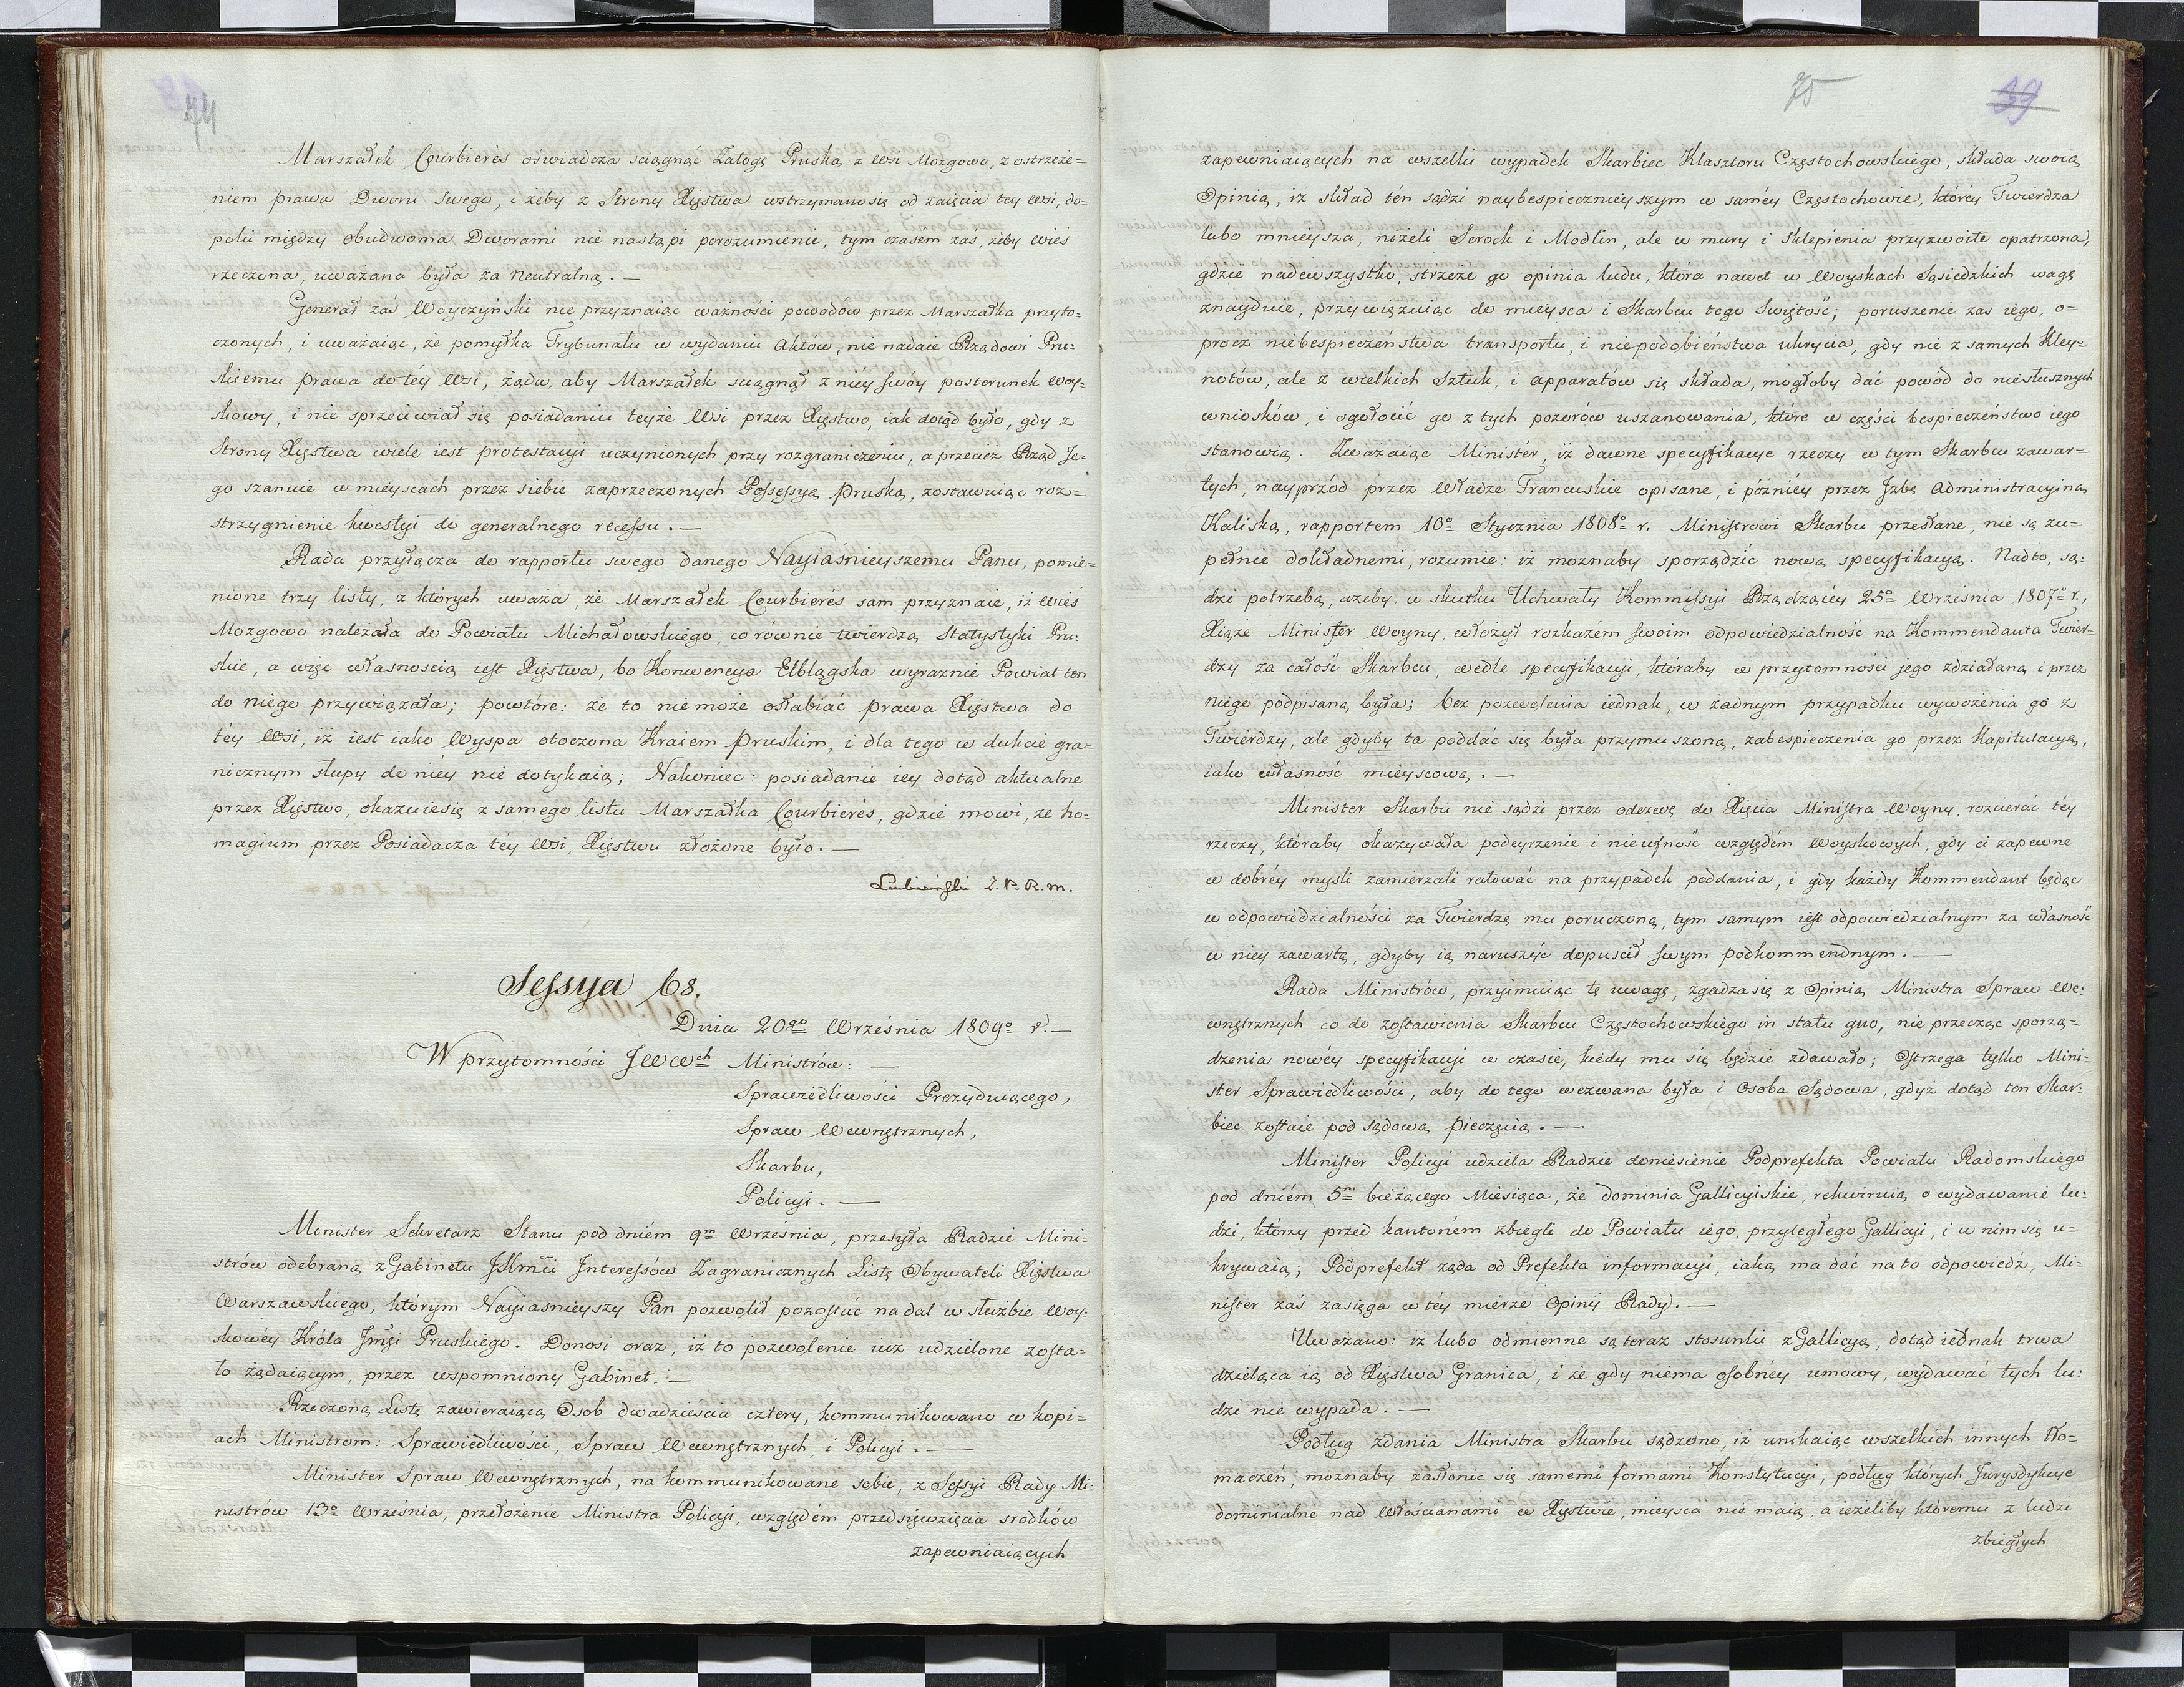 74
Marszałek Courbierès oświadcza sciągnąć Załogę Pruską z Wsi Mozgowo, z ostrzeże=
niem prawa Dworu Swego, i żeby z Strony Xięstwa wstrzymano się od zaięcia tey Wsi, do=
póki między obudwoma Dworami nie nastąpi porozumienie, tym czasem zaś, żeby wieś
rzeczona, uważana była za neutralną. —
Generał zaś Woyczyński nie przyznaiąc ważności powodów przez Marszałka przyto=
czonych, i uważaiąc, że pomyłka Trybunału w wydaniu Aktów, nie nadaie Rządowi Pru=
skiemu prawa do téy Wsi, żąda, aby Marszałek sciągnął z niéy swóy posterunek Woy=
skowy, i nie sprzeciwiał się posiadaniu teyże Wsi przez Xięstwo, iak dotąd było, gdy z
Strony Xięstwa wiele iest protestacyi uczynionych przy rozgraniczeniu, a przecież Rząd Je=
go szanuie w mieyscach przez siebie zaprzeczonych Possessyą Pruską, zostawuiąc roz=
strzygnienie kwestyi do generalnego recessu. —
Rada przyłącza do rapportu swego danego Nayiaśnieyszemu Panu, pomie=
nione trzy listy, z których uważa, że Marszałek Courbierès sam przyznaie, iż wieś
Mozgowo należała do Powiatu Michałowskiego, co równie twierdzą Statystyki Pru=
skie, a więc własnoscią iest Xięstwa, bo Konwencya Elblągska wyraznie Powiat ten
do niego przywiązała; powtóre: że to nie może osłabiać prawa Xięstwa do
téy Wsi, iż iest iako Wyspa otoczona Kraiem Pruskim, i dla tego w dukcie gra=
nicznym słupy do niéy nie dotykaią; Nakoniec: posiadanie iey dotąd aktualne
przez Xięstwo, okazuie się z samego listu Marszałka Courbierès, gdzie mowi, ze ho=
magium przez Posiadacza téy Wsi, Xięstwu złożone było. —
Lubieński Z. P. R. m.
Sessya 68.
Dnia 20go Września 1809o r. —
W przytomności JWWch Ministrów: —
Sprawiedliwości Prezyduiącego,
Spraw Wewnętrznych,
Skarbu,
Policyi. —
Minister Sekretarz Stanu pod dniém 9m Września, przesyła Radzie Mini=
strów odebraną z Gabinetu JKmći Interessów Zagranicznych Listę Obywateli Xięstwa
Warszawskiego, którym Nayiasnieyszy Pan pozwolił pozostać nadal w służbie Woy=
skowéy Króla Jmći Pruskiego. Donosi oraz, iż to pozwolenie iuż udzielone zosta=
ło żądaiącym, przez wspomniony Gabinet. —
Rzeczoną Listę zawieraiącą Osob dwadzieścia cztery, kommunikowano w kopi=
ach Ministrom: Sprawiedliwości, Spraw Wewnętrznych i Policyi. —
Minister Spraw Wewnętrznych, na kommunikowane sobie, z Sessyi Rady Mi=
nistrów 13o Września, przełożenie Ministra Policyi, względém przedsięwzięcia srodków
zapewniaiących
75
39
zapewniaiących na wszelki wypadek Skarbiec Klasztoru Częstochowskiego, składa swoią
Opinią, iż skład tén sądzi naybespiecznieyszym w saméy Częstochowie, któréy Twierdza
lubo mnieysza, niżeli Serock i Modlin, ale w mury i Sklepienia przyzwoite opatrzona,
gdzie nadewszystko, strzeże go opinia ludu, która nawet w Woyskach Sąsiedzkich wagę
znayduie, przywięzuiąc do mieysca i Skarbcu tego Swiętość; poruszenie zas iego, o=
procz niebespieczeństwa transportu, i niepodobieństwa ukrycia, gdy nie z samych Kley=
notów, ale z wielkich Sztuk, i apparatów się składa, mogłoby dać powód do niesłusznych
wniosków, i ogołocić go z tych pozorów uszanowania, które w częśći bespieczeństwo iego
stanowią. Zważaiąc Ministér, iż dawne specyfikacye rzeczy w tym Skarbcu zawar=
tych, nayprzód przez Władze Francuskie opisane, i pózniéy przez Jzbę Administracyiną
Kaliską, rapportem 10o Stycznia 1808o r. Ministrowi Skarbu przesłane, nie są zu=
pełnie dokładnemi, rozumie: iż moznaby sporządzić nową specyfikacyą. Nadto, są=
dzi potrzebą, azeby w skutku Uchwały Kommissyi Rządzącéy 25o Września 1807o r.,
Xiąże Minister Woyny, włożył rozkazém swoim odpowiedzialność na Kommendanta Twier=
dzy za całość Skarbcu, wedle specyfikacyi, któraby w przytomności jego zdziałaną i przez
niego podpisaną była; bez pozwolenia iednak, w żadnym przypadku wywożenia go z
Twiérdzy, ale gdyby ta poddać się była przymuszoną, zabespieczenia go przez Kapitulacyą,
iako własność mieyscową. —
Minister Skarbu nie sądzi przez odezwę do Xięcia Ministra Woyny, rozcierać téy
rzeczy, któraby okazywała podeyrzenie i nieufność względém Woyskowych, gdy ci zapewne
w dobréy mysli zamierzali ratować na przypadek poddania, i gdy każdy Kommendant będąc
w odpowiédzialności za Twierdzę mu poruczoną, tym samym iest odpowiedzialnym za własność
w niey zawartą, gdyby ią naruszyć dopuscił swym podkommendnym. —
Rada Ministrów, przyimuiąc tę uwagę, zgadza się z Opinią Ministra Spraw We=
wnętrznych co do zostawienia Skarbcu Częstochowskiego in statu quo, nie przecząc sporzą=
dzenia nowéy specyfikacyi w czasie, kiedy mu się będzie zdawało; Ostrzega tylko Mini=
ster Sprawiedliwości, aby do tego wezwana była i Osoba Sądowa, gdyż dotąd ten Skar=
biec zostaie pod sądową pieczęcią. —
Minister Policyi udziela Radzie doniesienie Podprefekta Powiatu Radomskiego
pod dniém 5m bieżącego Miesiąca, że Dominia Gallicyiskie, rekwiruią o wydawanie lu=
dzi, którzy przed kantoném zbiegli do Powiatu iego, przyległego Gallicyi, i w nim się u=
krywaią; Podprefekt ząda od Prefekta informacyi, iaką ma dać na to odpowiedź, Mi=
nister zaś zasięga w téy mierze Opinii Rady. —
Uważano: iż lubo odmienne są teraz stosunki z Gallicyą, dotąd iednak trwa
dzieląca ią od Xięstwa Granica, i że gdy niéma osobnéy umowy, wydawać tych lu=
dzi nie wypada. —
Podług zdania Ministra Skarbu sądzono, iż unikaiąc wszelkich innych tło=
maczeń, moznaby zasłonic się samemi formami Konstytucyi, podług których Jurysdykcye
dominialne nad Włościanami w Xięstwie, mieysca nie maią, a ieżeliby któremu z ludzi
zbiegłych